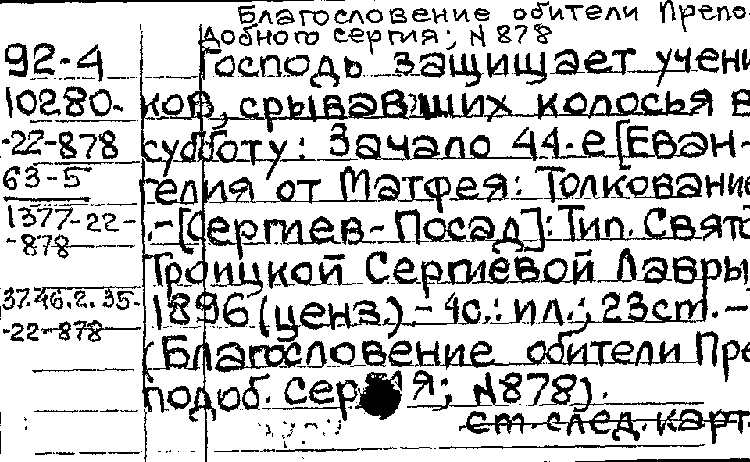 Благословение обители Препо-
добного Сергия; N 878
92-4
Господь защищает учени
10280-
ков, срывавших колосья в
-22-878
субботу: Зачало 44-е [Еван-
63-5
гелия от Матфея: Толкование
1377-22-
.-[Сергиев-Посад]: Тип. Свято
-878
Троицкой Сергиевой Лавры,
37.46.2.35-
1896 (ценз.).- 4с.: ил.; 23см. -
-22-878
(Благословение обители Пре
подоб. Сергия; N878).
ст. след. карт.